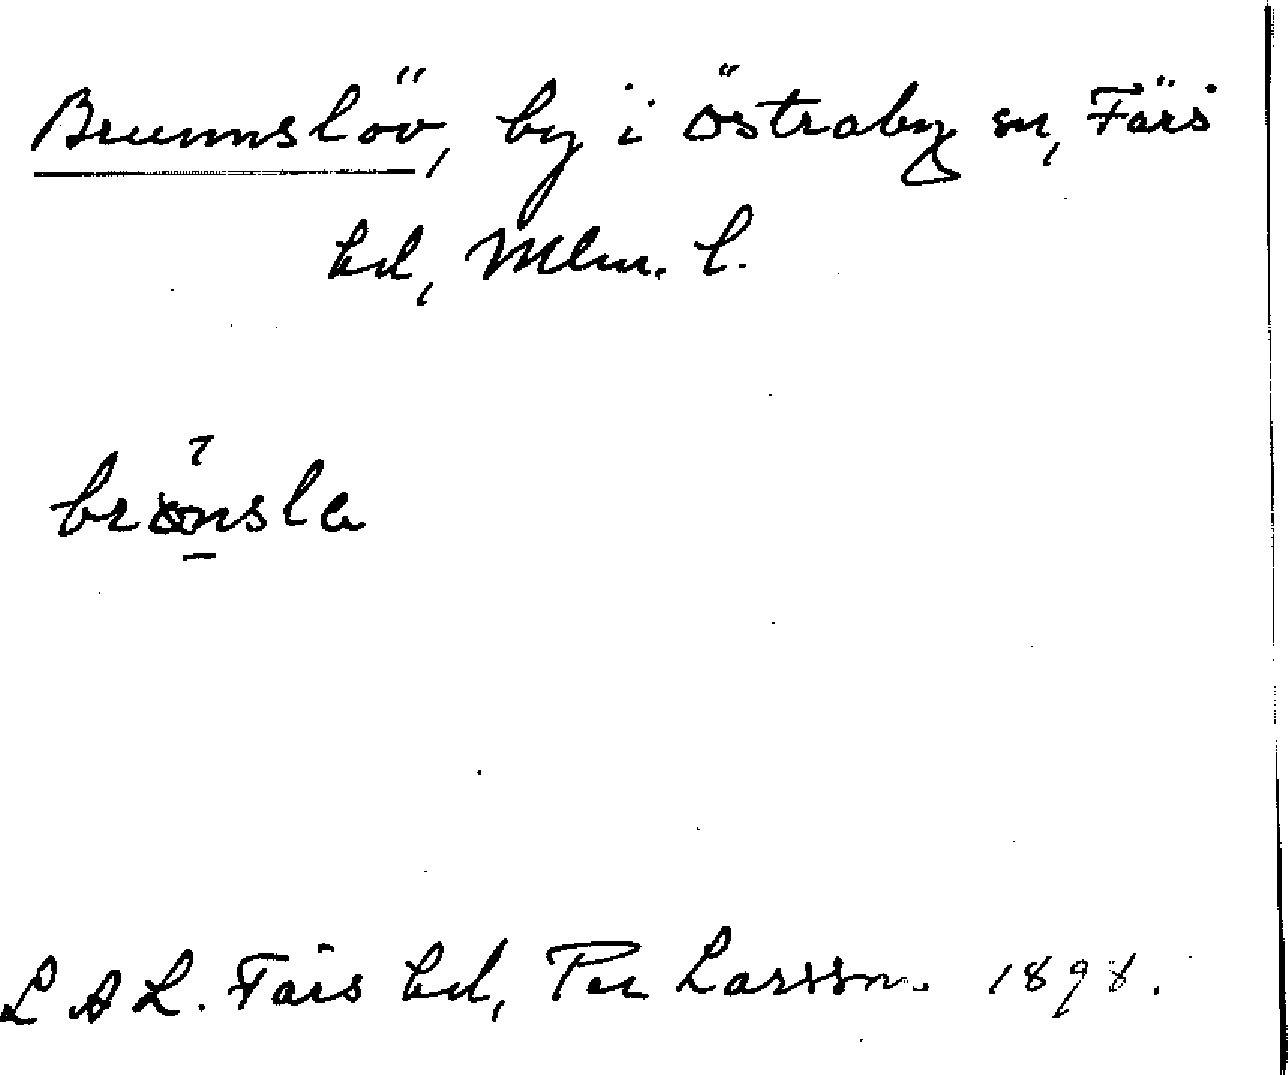 Brunnslöv, by i Östraby sn, Färs
hd, Mlm. l.
brönsla
L A L. Färs hd, Per Larsson. 1898.